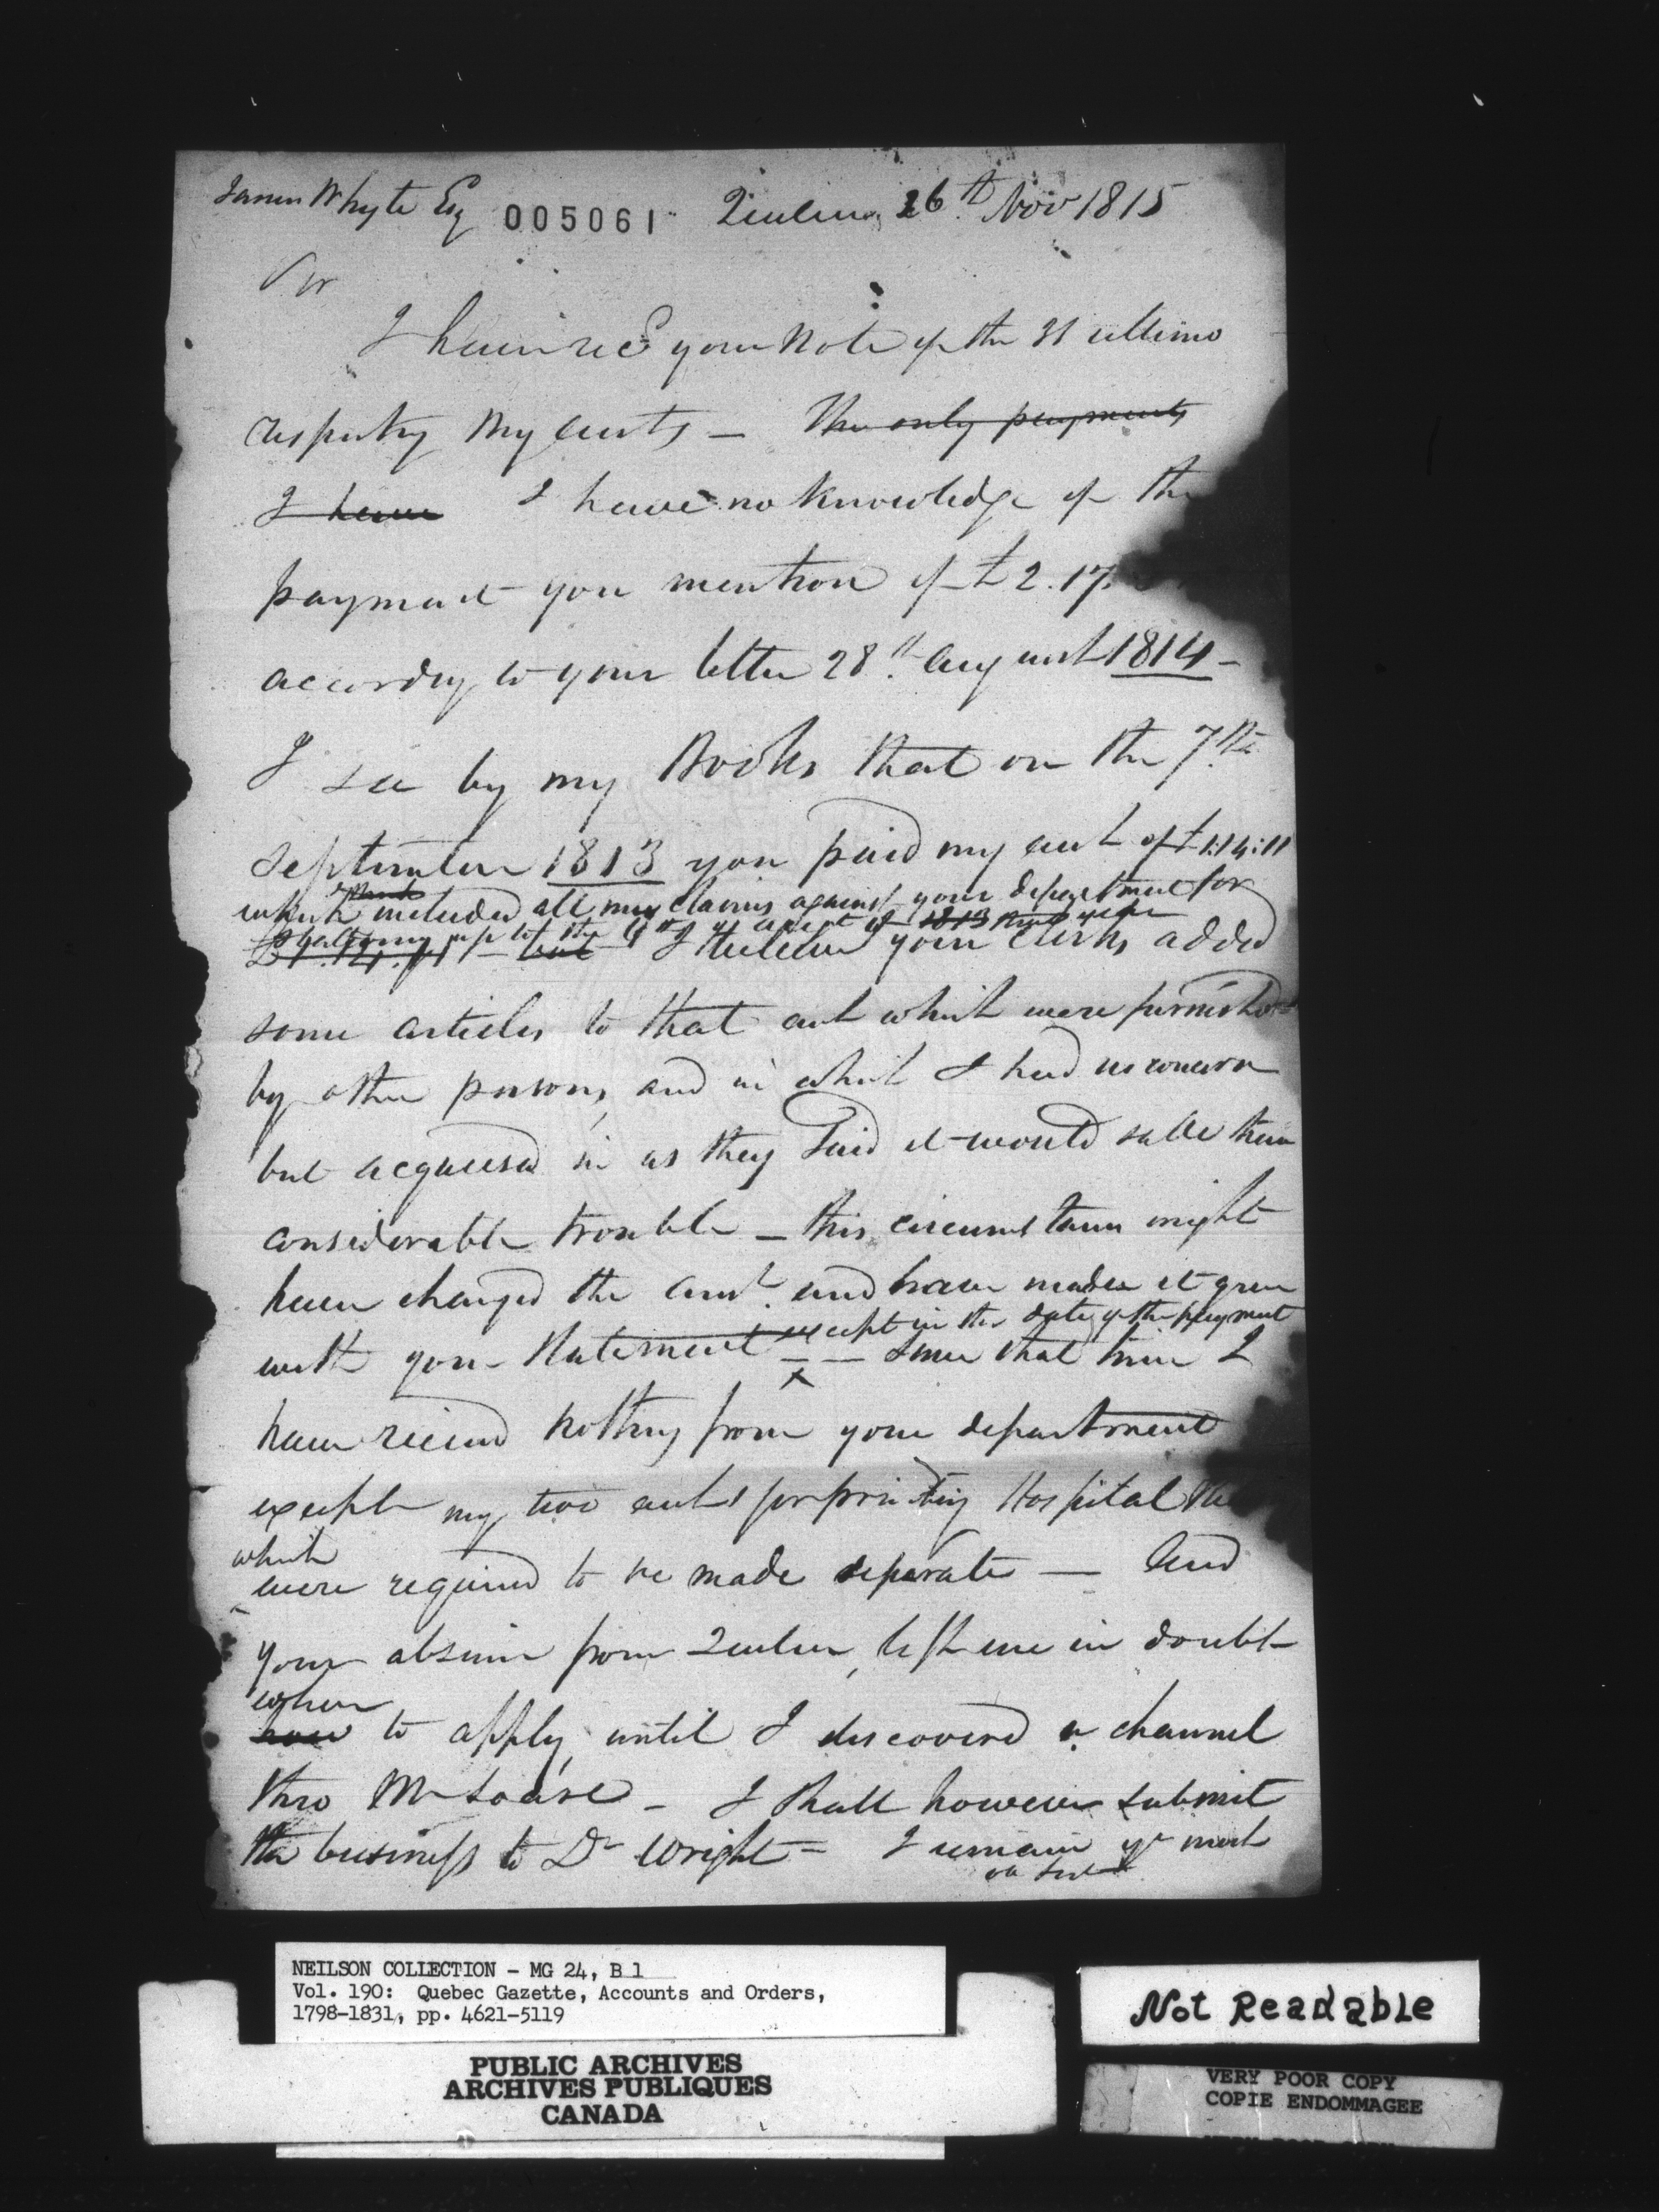 James Whyte Esq 005061 Quebec 26th Nov 1815
Sir
I have recd your Note of the 31 ultimo
respecting my accts — The only payments
I have I have no knowledge of the
payment you mention of £2.17.
according to your letter 28th August 1814 —
I see by my Books that on the 7th
September 1813 you paid my acct of £1:14:11
which included all my claims against your department for
£1.14.11 — but I believe your clerks added
some articles to that acct which were furnished
by other persons, and in which I had no concern
but acquiesed in as they said it would save them
considerable trouble — this circumstance might
have changed the amt. and have made it gree
with your Statement except in the date of the payment
— since that time I
have recieved nothing from your department
except my two accts for printing Hospital
which
were required to be made separate — And
your absence from Quebec, left me in doubt
where
how to apply, until I discovered a channel
thro Mr — I shall however submit
the business to Dr Wright = I remain yr most
ob Sert
NEILSON COLLECTION - MG 24, B 1
Vol. 190: Quebec Gazette, Accounts and Orders,
1798-1831, pp. 4621-5119
PUBLIC ARCHIVES
ARCHIVES PUBLIQUES
CANADA
Not Readable
VERY POOR COPY
COPIE ENDOMMAGEE